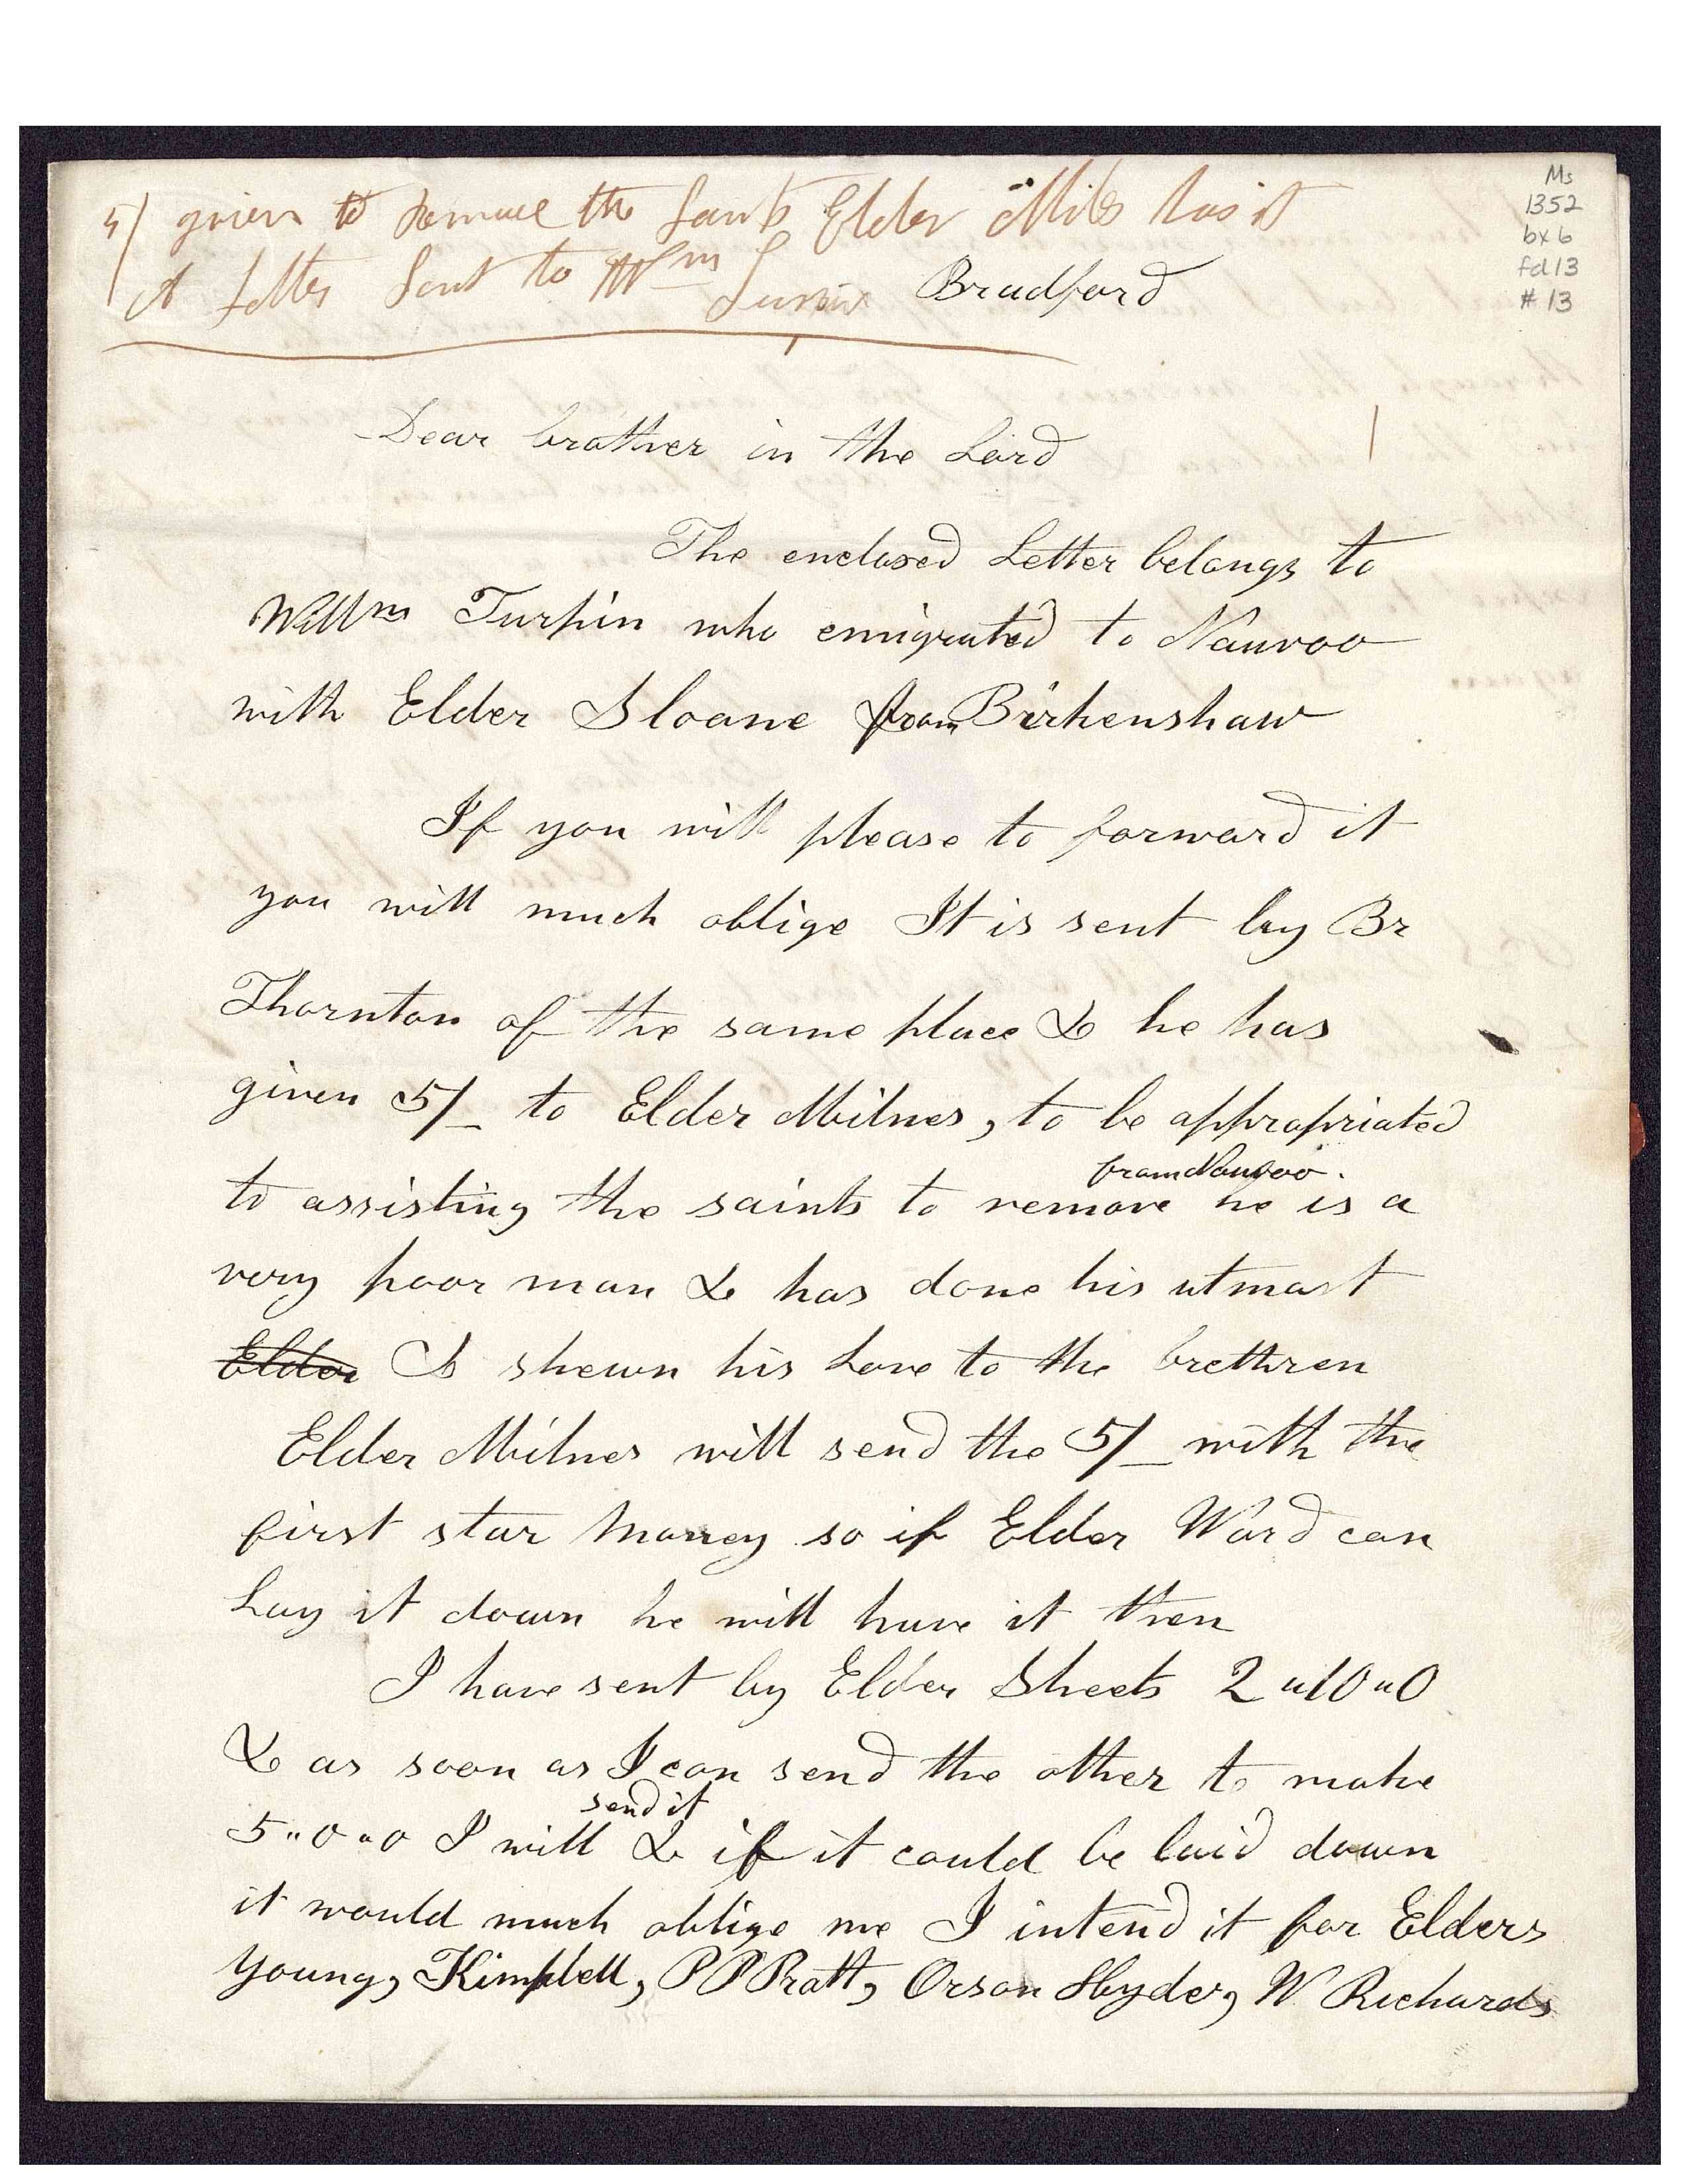 5/ given to remove the Saints Elder Milns has it
Ms
1352
bx 6
fd 13
# 13
A Letter Sent to Wm
Bradford
Dear brother in the Lord
The enclosed Letter belongs to
Willm Turpin who emigrated to Nauvoo
with Elder Sloane from Birkenshaw
If you will please to forward it
you will much oblige It is sent by Br
Thornton of the same place & he has
given 5/- to Elder Milnes, to be appropriated
from Nauvoo.
to assisting the saints to remove he is a
very poor man & has done his utmost
Elder & shewn his Love to the brethren
Elder Milnes will send the 5/- with the
first star money so if Elder Ward can
Lay it down he will have it then
I have sent by Elder Sheets 2"10"0
& as soon as I can send the other to make
send it
5"0"0 I will & if it could be laid down
it would much oblige me I intend it for Elders
Young, Kimpbell, P P Pratt, Orson Hyde, W Richards